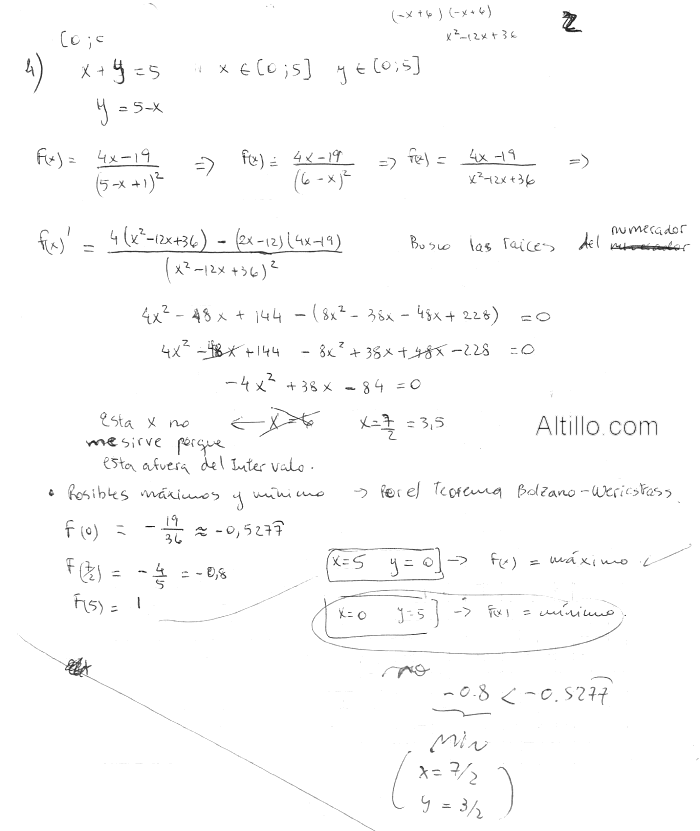 (-x+6) (-x+6)
x²-12x+36
2
[0;
4) x + y = 5 x ∈ [0;5] y ∈ [0;5]
y = 5-x
F(x) = (4x-19)/(5-x+1)² => f(x) = (4x-19)/(6-x)² => f(x) = (4x-19)/(x²-12x+36) =>
f(x)' = (4(x²-12x+36) - (2x-12)(4x-19))/(x²-12x+36)² Busco las raices del numerador
4x² - 48x + 144 - (8x² - 38x - 48x + 228) = 0
4x² - 48x + 144 - 8x² + 38x + 48x - 228 = 0
-4x² + 38x - 84 = 0
Esta x no ← x = 6 x = 7/2 = 3,5
me sirve porque
esta afuera del Intervalo.
Altillo.com
• Posibles máximos y mínimo → Por el Teorema Bolzano-Weriestrass
F(0) = -19/36 ≈ -0,5277
F(7/2) = -4/5 = -0,8
F(5) = 1
x=5 y=0 → F(x) = máximo ✓
x=0 y=5 → F(x) = mínimo.
no
-0.8 < -0.5277
Min
(x = 7/2
y = 3/2)